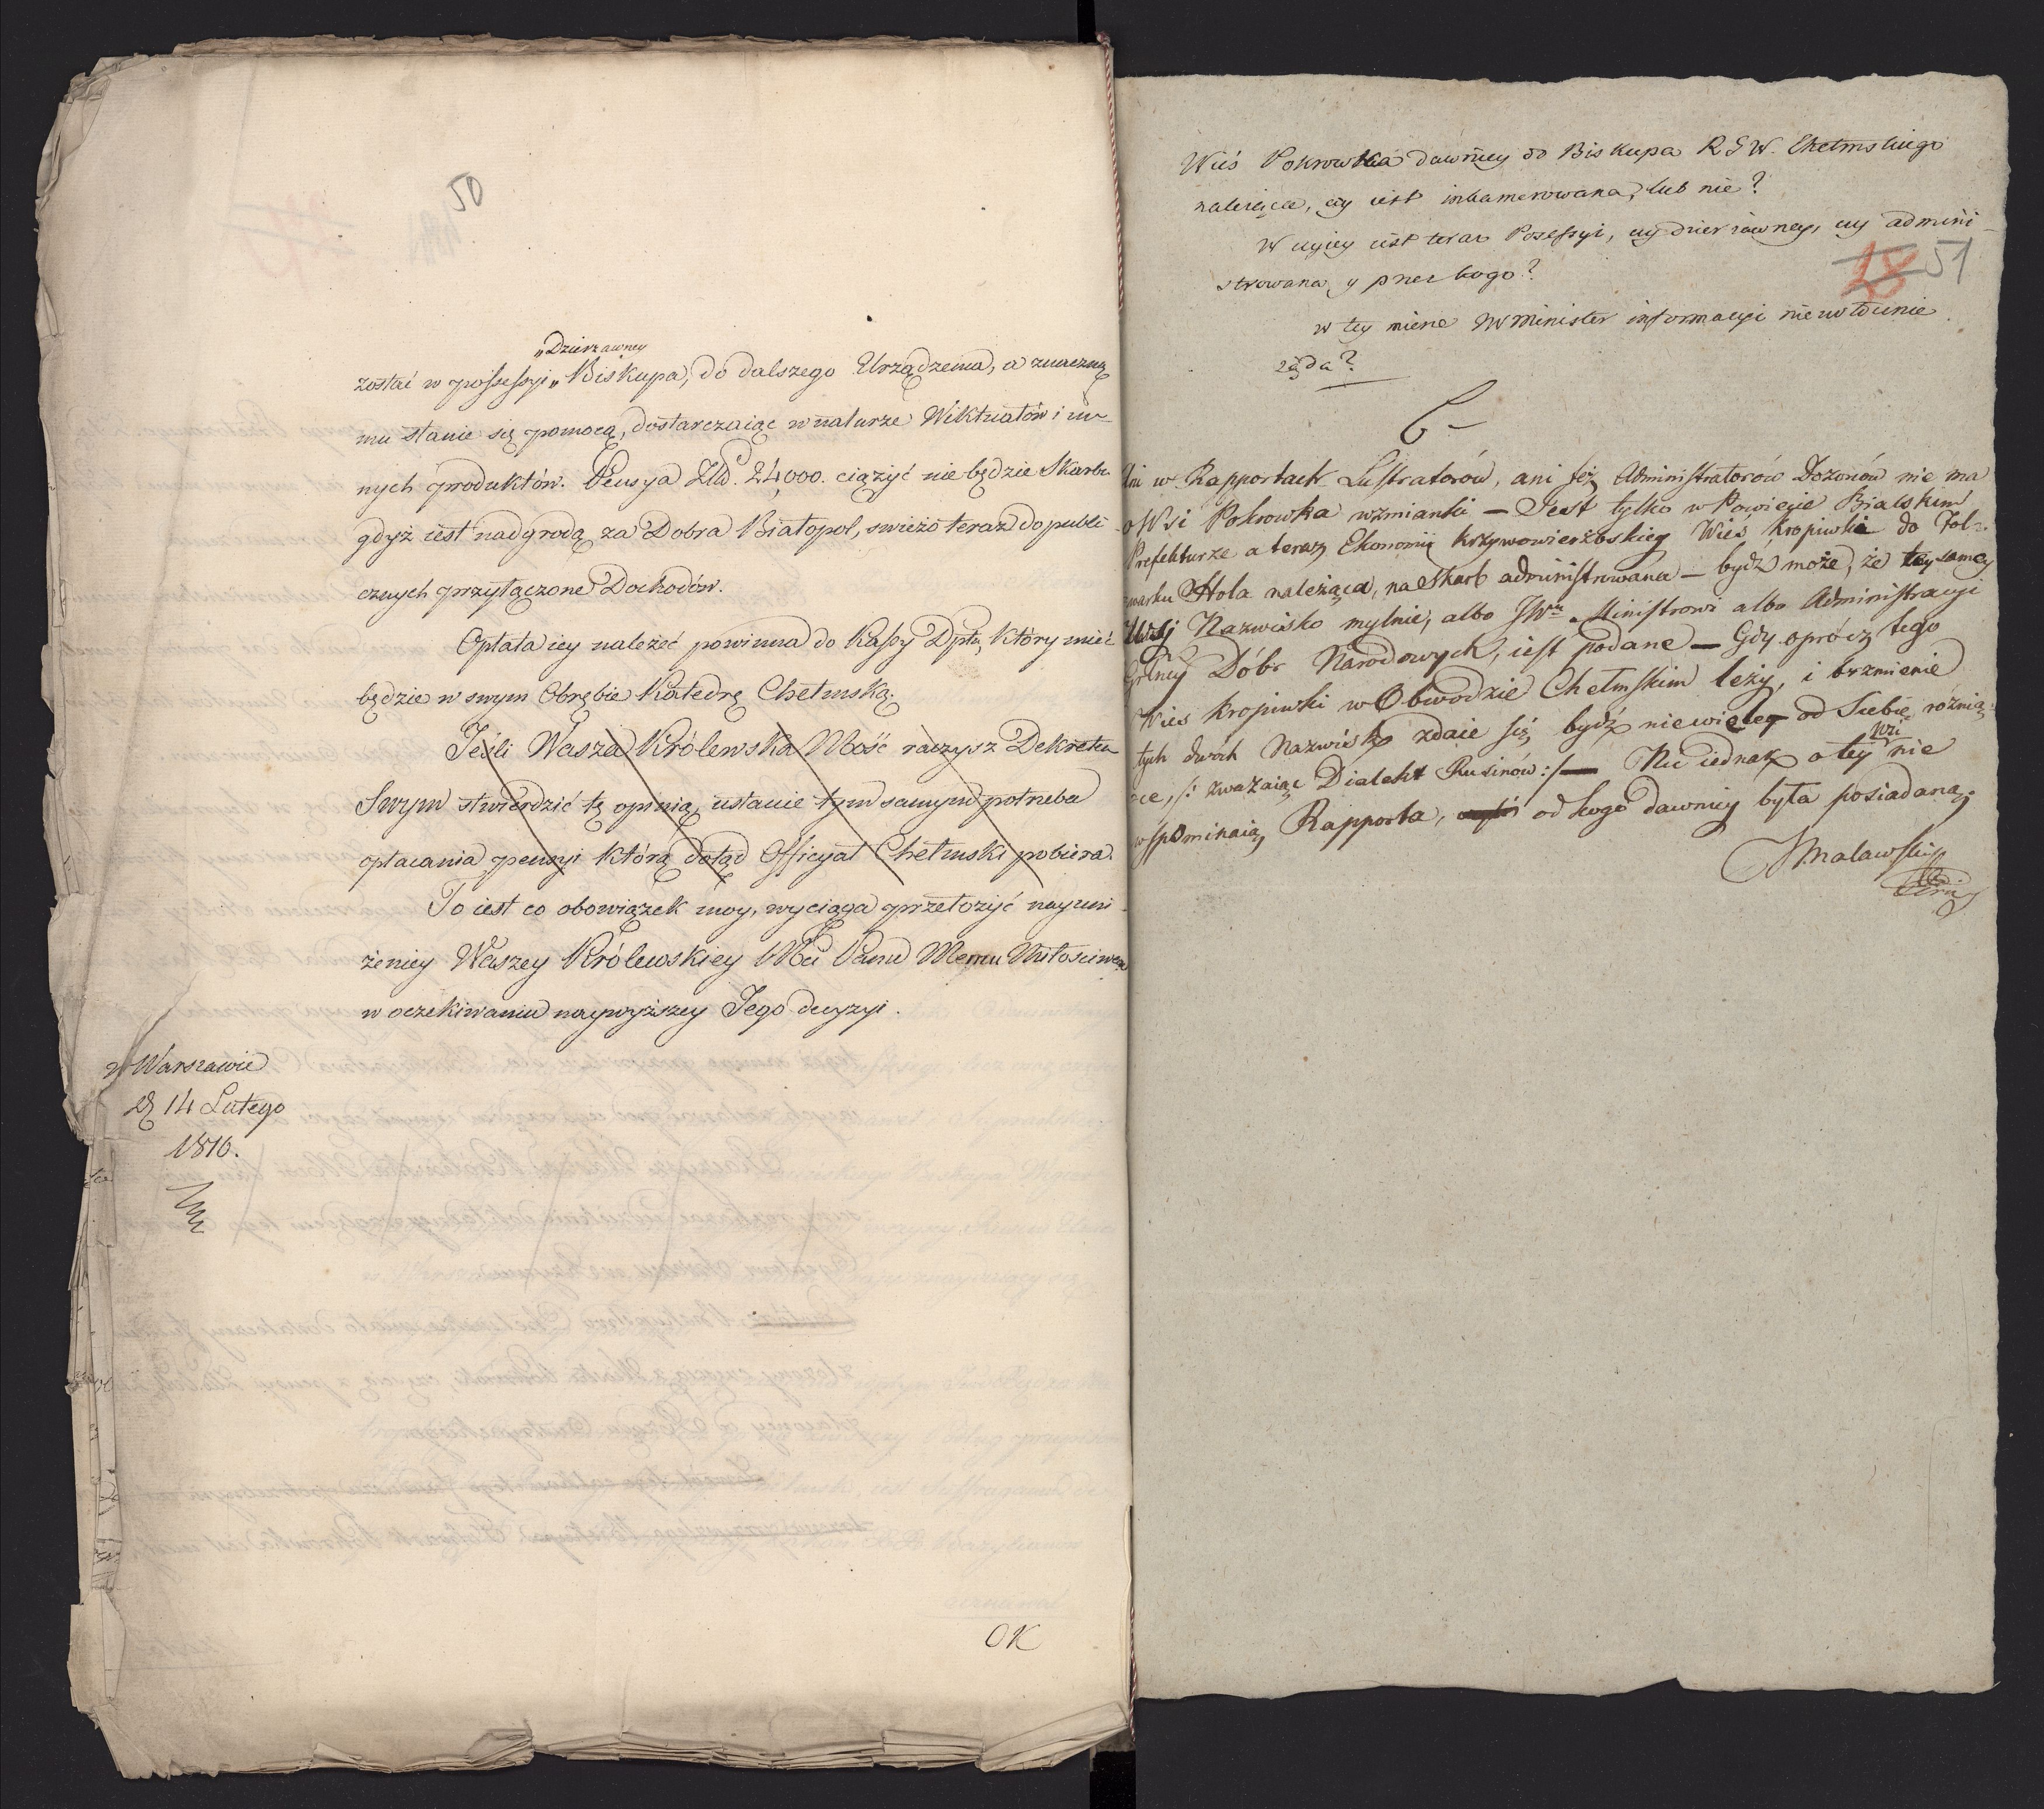 50
„Dzierzawney
zostać w possessyi „Biskupa, do dalszego Urządzenia, a znaczną
mu stanie się pomocą, dostarczaiąc w naturze Wiktuałów i in-
nych produktów. Pensya Złp. 24,000. ciążyć nie będzie Skarbu
gdyż iest nadgrodą za Dobra Białopol, swieżo teraz do publi-
cznych przyłączone Dochodów.
Opłata iey należeć powinna do Kassy Dptu, który mieć
będzie w swym Obrębie Katedrę Chełmską.
Jeśli Wasza Królewska Mość raczysz Dekretem
Swym stwierdzić tę opinią, ustanie tym samym potrzeba
opłacania pensyi którą dotąd Officyał Chełmski pobiera.
To iest co obowiązek moy, wyciąga przełożyć nayuni-
żeniey Waszey Królewskiey Mci Panu Memu Miłosciwemu
w oczekiwaniu naywyższey Jego decyzyi.
w Warszawie
d. 14 Lutego
1810.
OK
Wieś Pokrowka dawniey do Biskupa R G W. Chełmskiego
należąca, czy iest inkamerowana, lub nie?
W czyiey iest teraz Posessyi, czy dzierżawney, czy admini-
strowana, y przez kogo?
18 51
w tey mierze JW Minister informacyi niezwłocznie
żąda?
Ani w Rapportach Lustratorów, ani też Administratorów Dozorów nie ma
o Wsi Pokrowka wzmianki — Jest tylko w Powiecie Bialskim
Prefekturze a teraz Ekonomii Krzywowierzbskiey Wieś Kropiwki do Fol-
warku Hola należąca, na Skarb administrowana — bydź może, że tey samey
Wsi Nazwisko mylnie, albo JWmu Ministrowi albo Administracyi
Dóbr Narodowych, iest podane — Gdy oprócz tego
Wieś Kropiwki w Obwodzie Chełmskim leży, i brzmienie
tych dwoch Nazwisk zdaie się bydź niewiele od Siebie różnią-
ce, /: zważaiąc Dialekt Rusinów :/ — Nic iednak o tey Wsi nie
wspominaią Rapporta, od kogo dawniey była posiadaną.